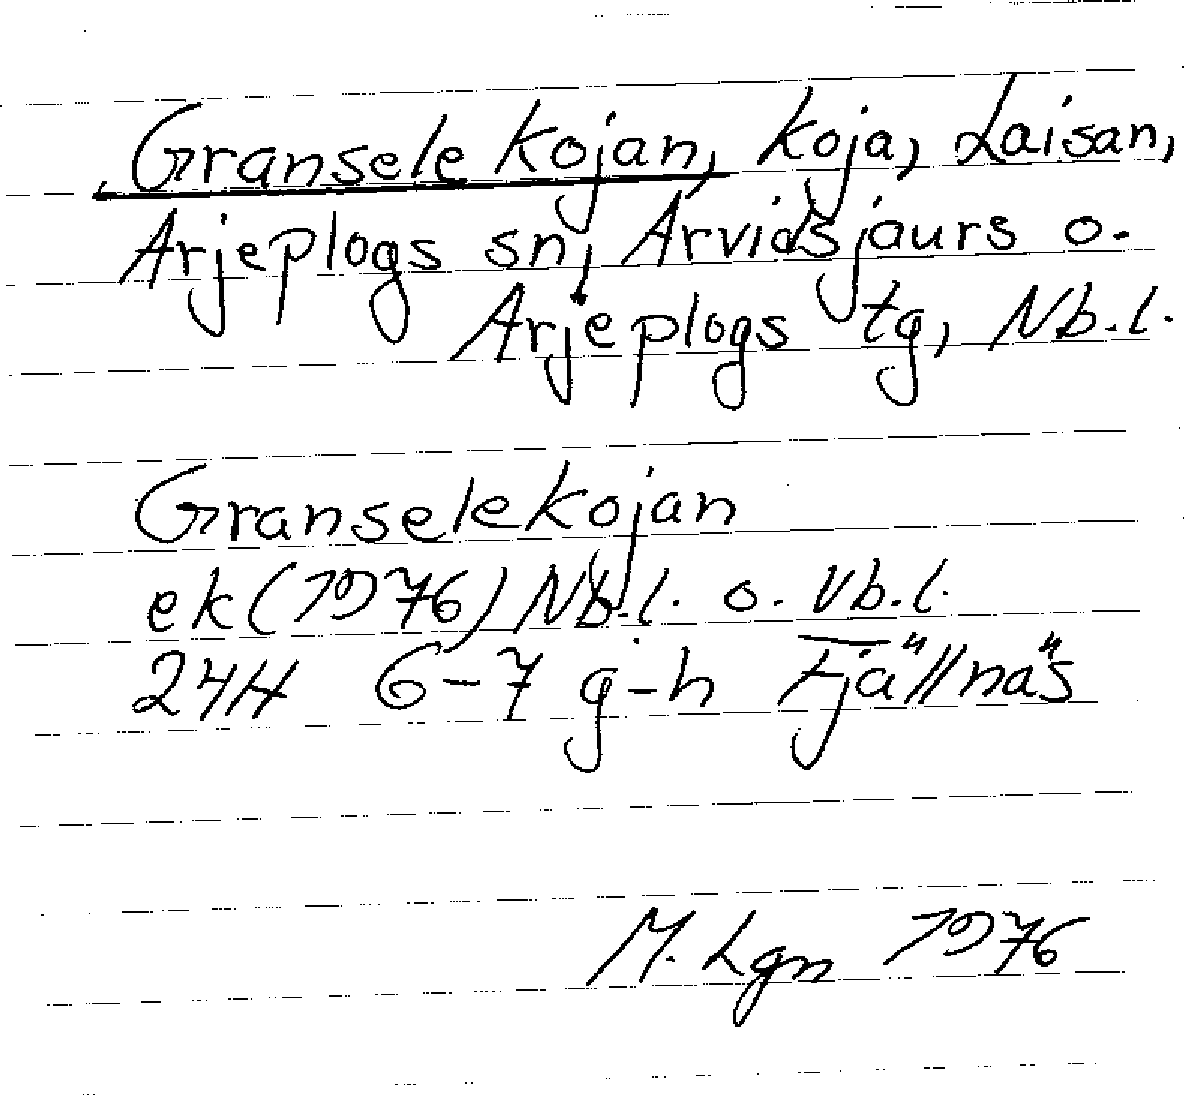 Granselekojan, koja, Laisan,
Arjeplogs sn, Arvidsjaurs o.
Arjeplogs tg, Nb.l.
Granselekojan
ek (1976) Nb.l. o. Vb.l.
24H 6-7 g-h Fjällnäs
M. Lgn 1976